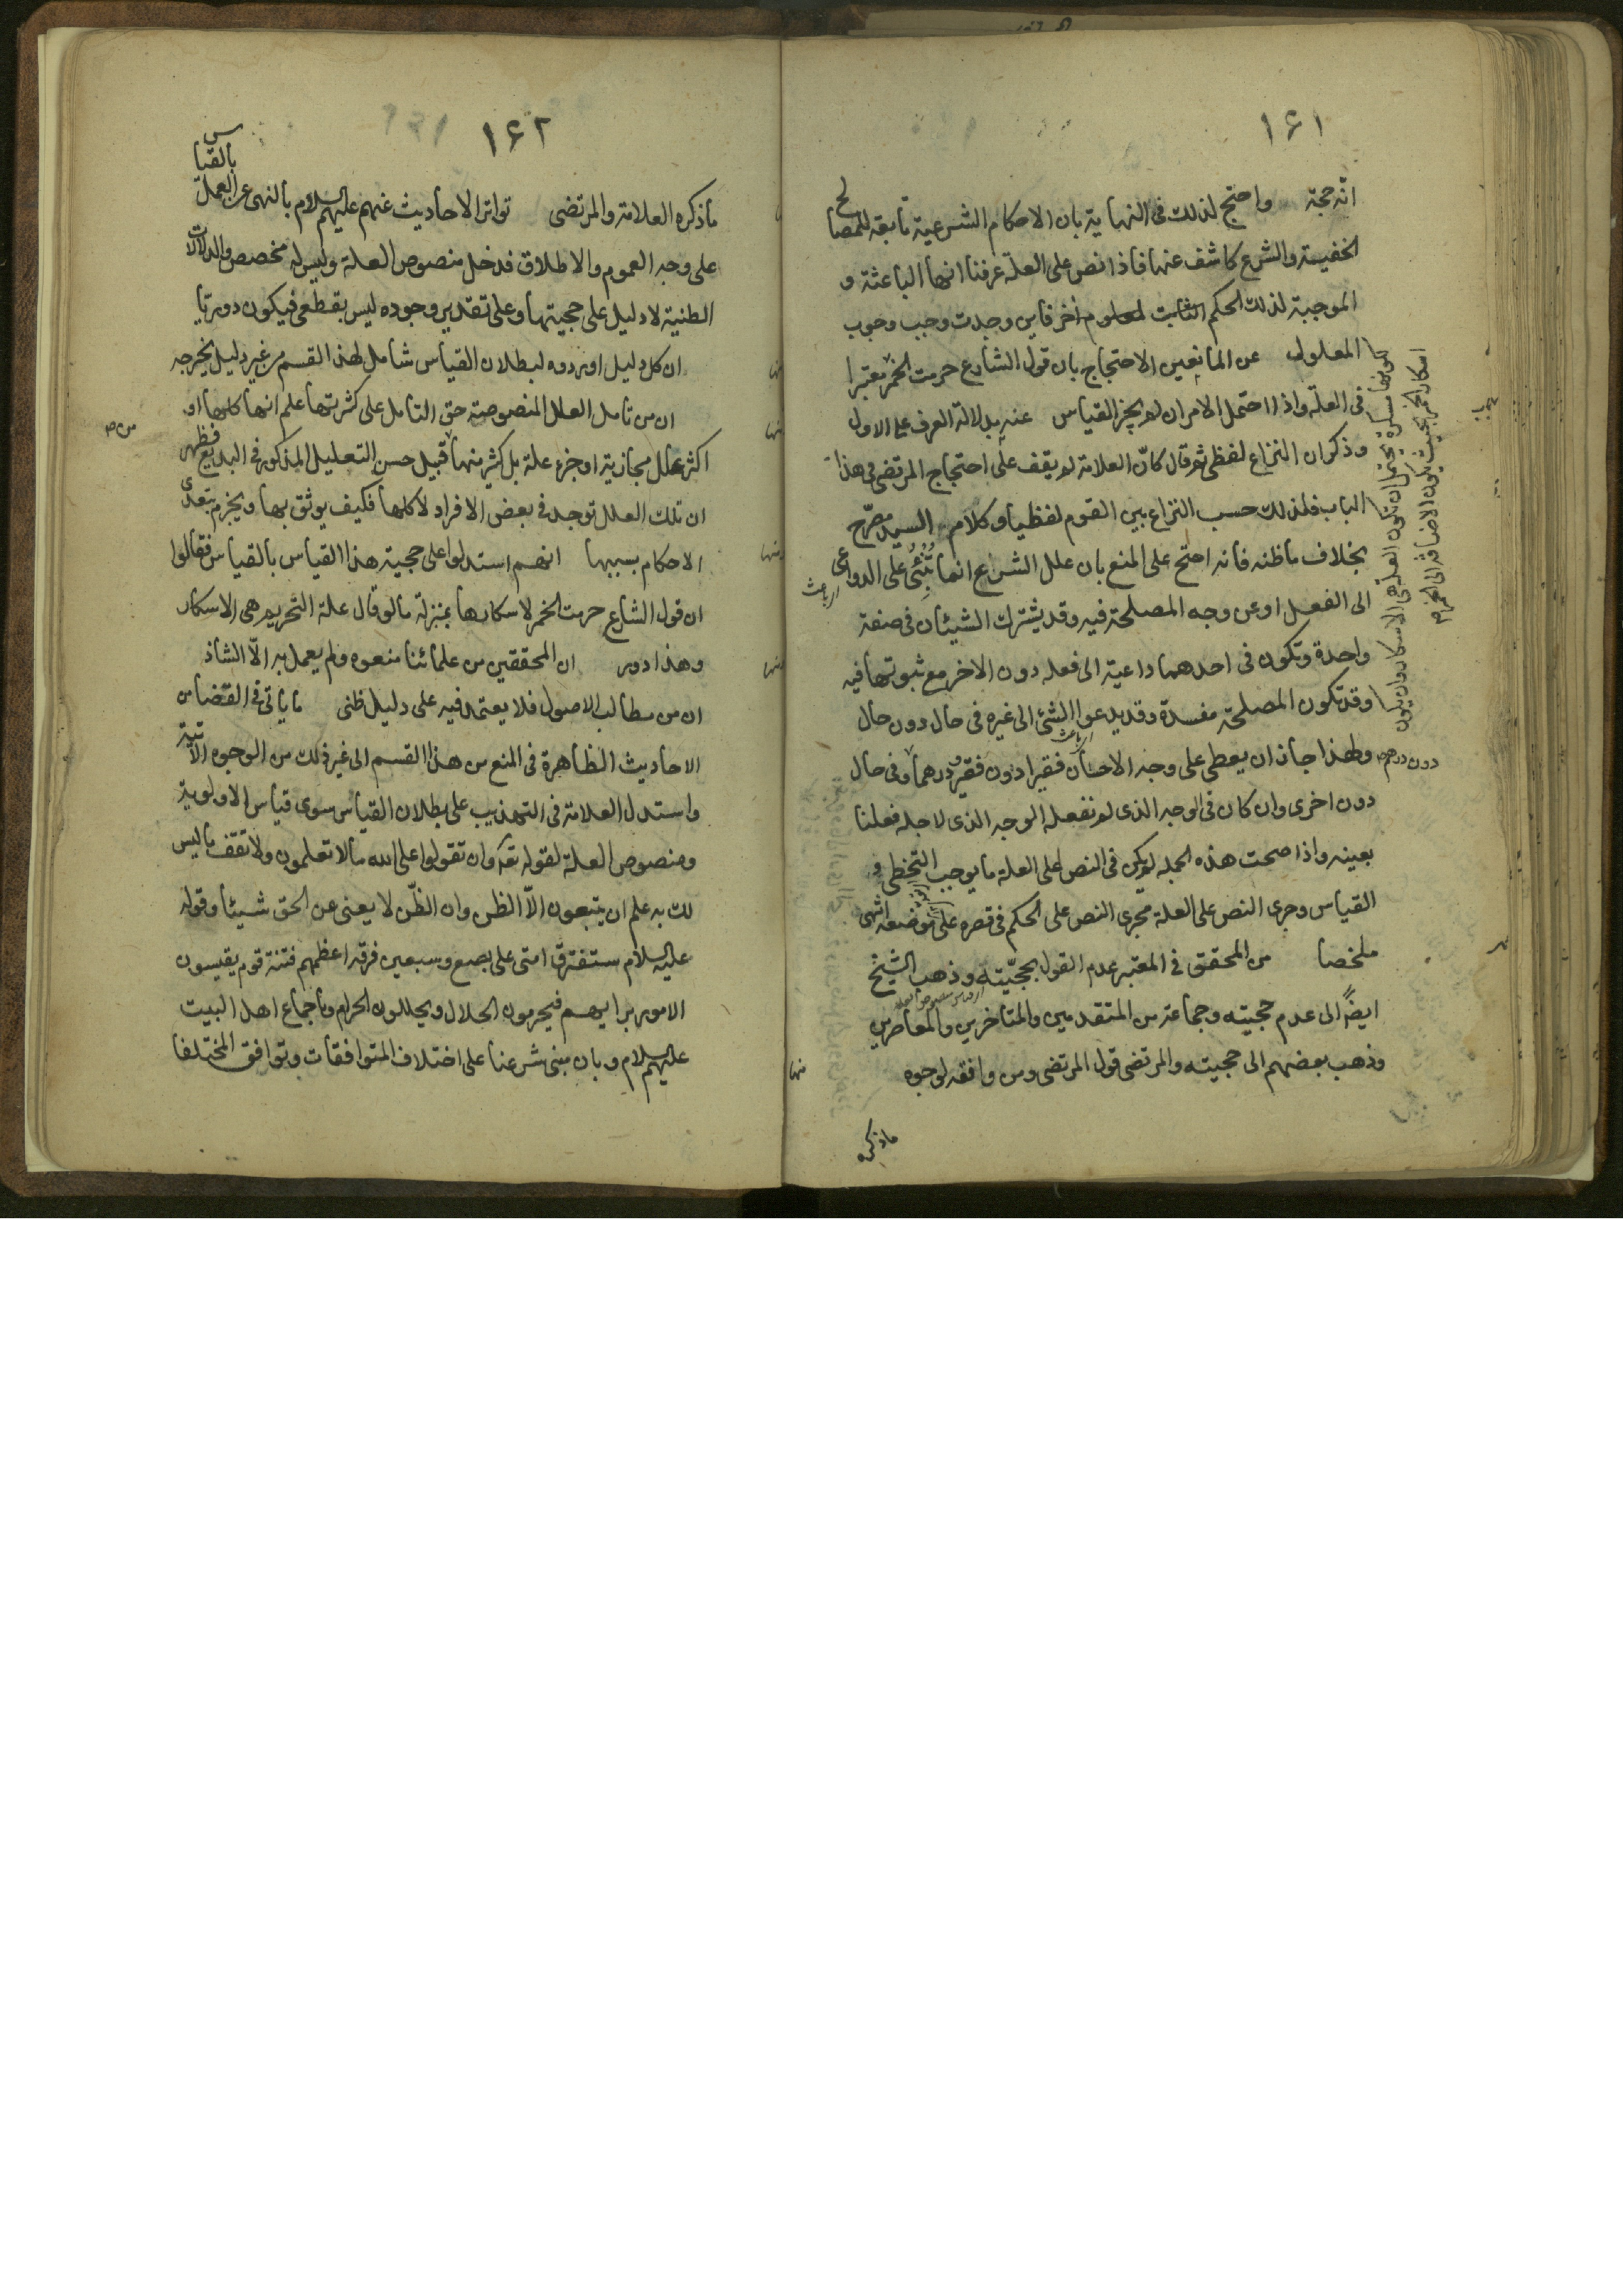 ١۶١
انّه حجة واحتج لذلك فى النهاية بان الاحكام الشرعية تابعة للمصالح
الخفية والشرع كاشف عنها فاذا نص على العلة عرفنا انها الباعثة و
الموجبة لذلك الحكم الثابت لمعلوم اخر فاين وجدت وجب وجوب
المعلول عن المانعين الاحتجاج بان قول الشارع حرمت الخمر معتبرا
فى العلة واذا احتمل الامران لم يجز القياس عنه بدلالة العرف على الاول
وذكر ان النزاع لفظى ثم قال كانّ العلامة لم يقف على احتجاج المرتضى فى هذا
الباب فلذلك حسب النزاع بين القوم لفظيا وكلام السيد مصرّح
بخلاف ما ظنه فانه احتج على المنع بان علل الشرع انما تُنْبِئُ على الدواعى
الى الفعل او عن وجه المصلحة فيه وقد يشترك الشيئان فى صفة
واحدة وتكون فى احدهما داعية الى فعله دون الاخر مع ثبوتها فيه
وقد تكون المصلحة مفسدة وقد يدعوا الشئ الى غيره فى حال دون حال
وطهذا جاز ان يعطى على وجه الاحسان فقيرا دون فقير ودرهما وفى حال
دون اخرى وان كان فى الوجه الذى لم نفعله الوجه الذى لاجله فعلنا
بعينه واذا صحت هذه الجملة لم يكن فى النص على العلة ما يوجب التخطى و
القياس وجرى النص على العلة مجرى النص على الحكم فى قصره على موضعه انتهى
ملخصا من المحقق فى المعتبر عدم القول بحجيّته وذهب الشيخ
ايضًا الى عدم حجيته وجماعة من المتقدمين والمتاخرين والمعاصرين
وذهب بعضهم الى حجيته والمرتضى قول المرتضى ومن وافقه لوجوه
منها
ماذكره
الباعث
دون درهم
كونها مسكرة يحتمل ان تكون العلة هى الاسكار وان يكون
اسكار الخمر بحيث يكون الاضافة الى الخمر
١۶٢
ماذكره العلامة والمرتضى تواتر الاحاديث عنهم عليهم السلام بالنهى عن العمل بالقياس
على وجه العموم والاطلاق فدخل منصوص العلة وليس له مخصص والدلالات
الظنية لا دليل على حجيتها وعلى تقدير وجوده ليس بقطعى فيكون دوريا
منها ان كل دليل اوردوه لبطلان القياس شامل لهذا القسم من غير دليل يخرجه
منها ان من تامل العلل المنصوصة حق التامل على كثرتها علم انها كلها او
اكثر علل مجازية او جزء علة بل كثير منها قبيل حسن التعليل المذكور فى البديع فظهر
ان تلك العلل توجد فى بعض الافراد لا كلها فكيف يوثق بها ويجزم بتعدى
الاحكام بسببها ومنها انهم استدلوا على حجية هذا القياس بالقياس فقالوا
ان قول الشارع حرمت الخمر لاسكارها بمنزلة ما لو قال علة التحريم هى الاسكار
وهذا دور ومنها ان المحققين من علمائنا منعوه ولم يعمل به الاّ الشاذ
ان من مطالب الاصول فلا يعتمد فيه على دليل ظنى ما ياتى فى القضا من
الاحاديث الظاهرة فى المنع من هذا القسم الى غير ذلك من الوجوه الاتية
واستدل العلامة فى التهذيب على بطلان القياس سوى قياس الاولوية
ومنصوص العلة لقوله تعه وان تقولوا على الله ما لا تعلمون ولا تقف ما ليس
لك به علم ان يتبعون الاّ الظن وان الظّن لا يغنى عن الحق شيئا وقوله
عليه السلام ستفترق امتى على بضع وسبعين فرقه اعظمهم فتنة قوم يقيسون
الامور برايهم فيحرمون الحلال ويحللون الحرام وباجماع اهل البيت
عليهم السلام وبان مبنى شرعنا على اختلاف المتوافقات وتوافق المختلفا
من